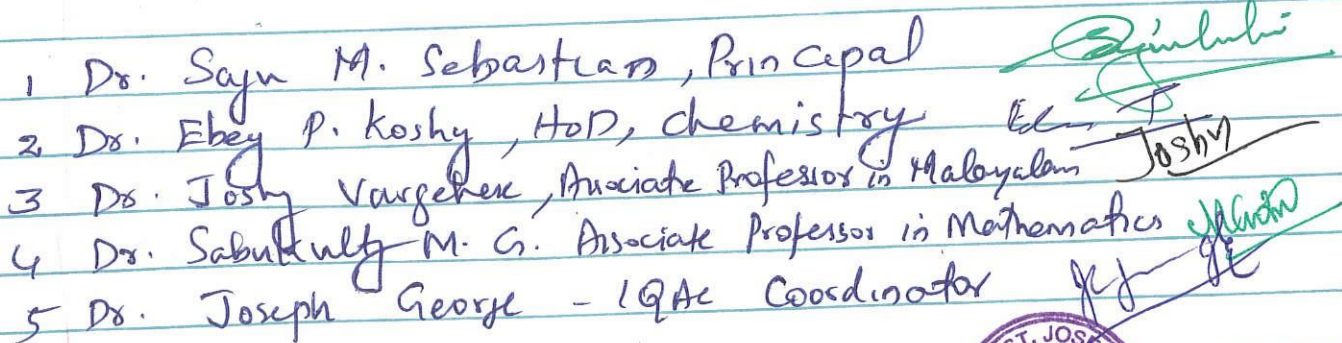 1 Dr. Saju M. Sebastian, Principal
2 Dr. Ebey P. Koshy, HoD, Chemistry
3 Dr. Joshy Varghese, Associate Professor in Malayalam Joshy
4 Dr. Sabukutty M. G. Associate Professor in Mathematics
5 Dr. Joseph George - IQAC Coordinator
ST. JOS